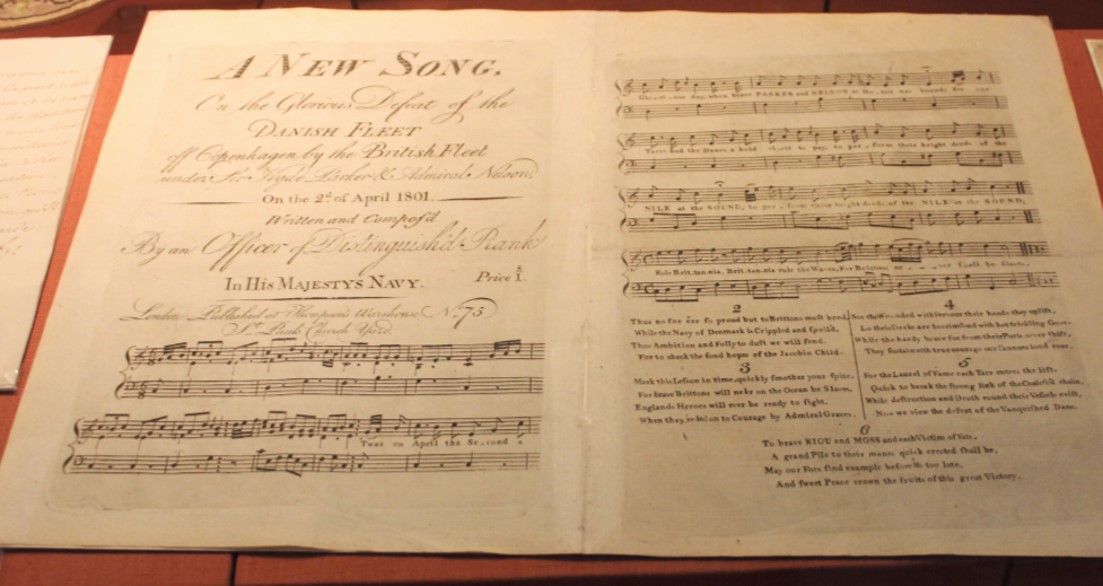 A NEW SONG,
On the Glorious Defeat of the
DANISH FLEET
off Copenhagen by the British Fleet
under Sir Hyde Parker & Admiral Nelson,
On the 2d of April 1801.
Written and Compos'd
By an Officer of Distinguish'd Rank
In His Majestys Navy.
Price 1s.
London Published at Thompsons Warehouse No. 75
St. Pauls Church Yard.
Twas on April the Se,cond a
day, when brave PARKER and NELSON so
Tars! and the Danes a bold visit to pay, to per,form their bright deeds of the
NILE at the SOUND, to per,form their bright deeds of the NILE at the SOUND,
Rule Brit,tan,nia, Brit,tan,nia rule the Waves, For Brittons ne,ver shall be Slaves,
2
Thus no foe ere so proud but to Brittons must bend,
While the Navy of Denmark is Crippled and spoil'd,
Thus Ambition and Folly to dust we will send.
For to check the fond hopes of the Jacobin Child.
3
Mark this Lesson in time, quickly smother your spite,
For brave Brittons will ne'er on the Ocean be Slaves,
Englands Heroes will ever be ready to fight,
When they're led on to Courage by Admiral Graves.
4
See the Wounded with fervour their hands they uplift,
Lo their decks are with hot trickling Gore,
While the hardy heave for from their Ports never shift,
They sustain with true courage our Cannons loud roar.
5
For the Laurel of Fame each Tarr enters the list,
Quick to break the strong link of the Coalesc'd chain,
While destruction and Death round their Vessels exist,
Now we view the defeat of the Vanquished Dane.
6
To brave RIOU and MOSS and each Victim of fate,
A grand Pile to their manes quick erected shall be,
May our Foes find example before its too late,
And sweet Peace crown the fruits of this great Victory.